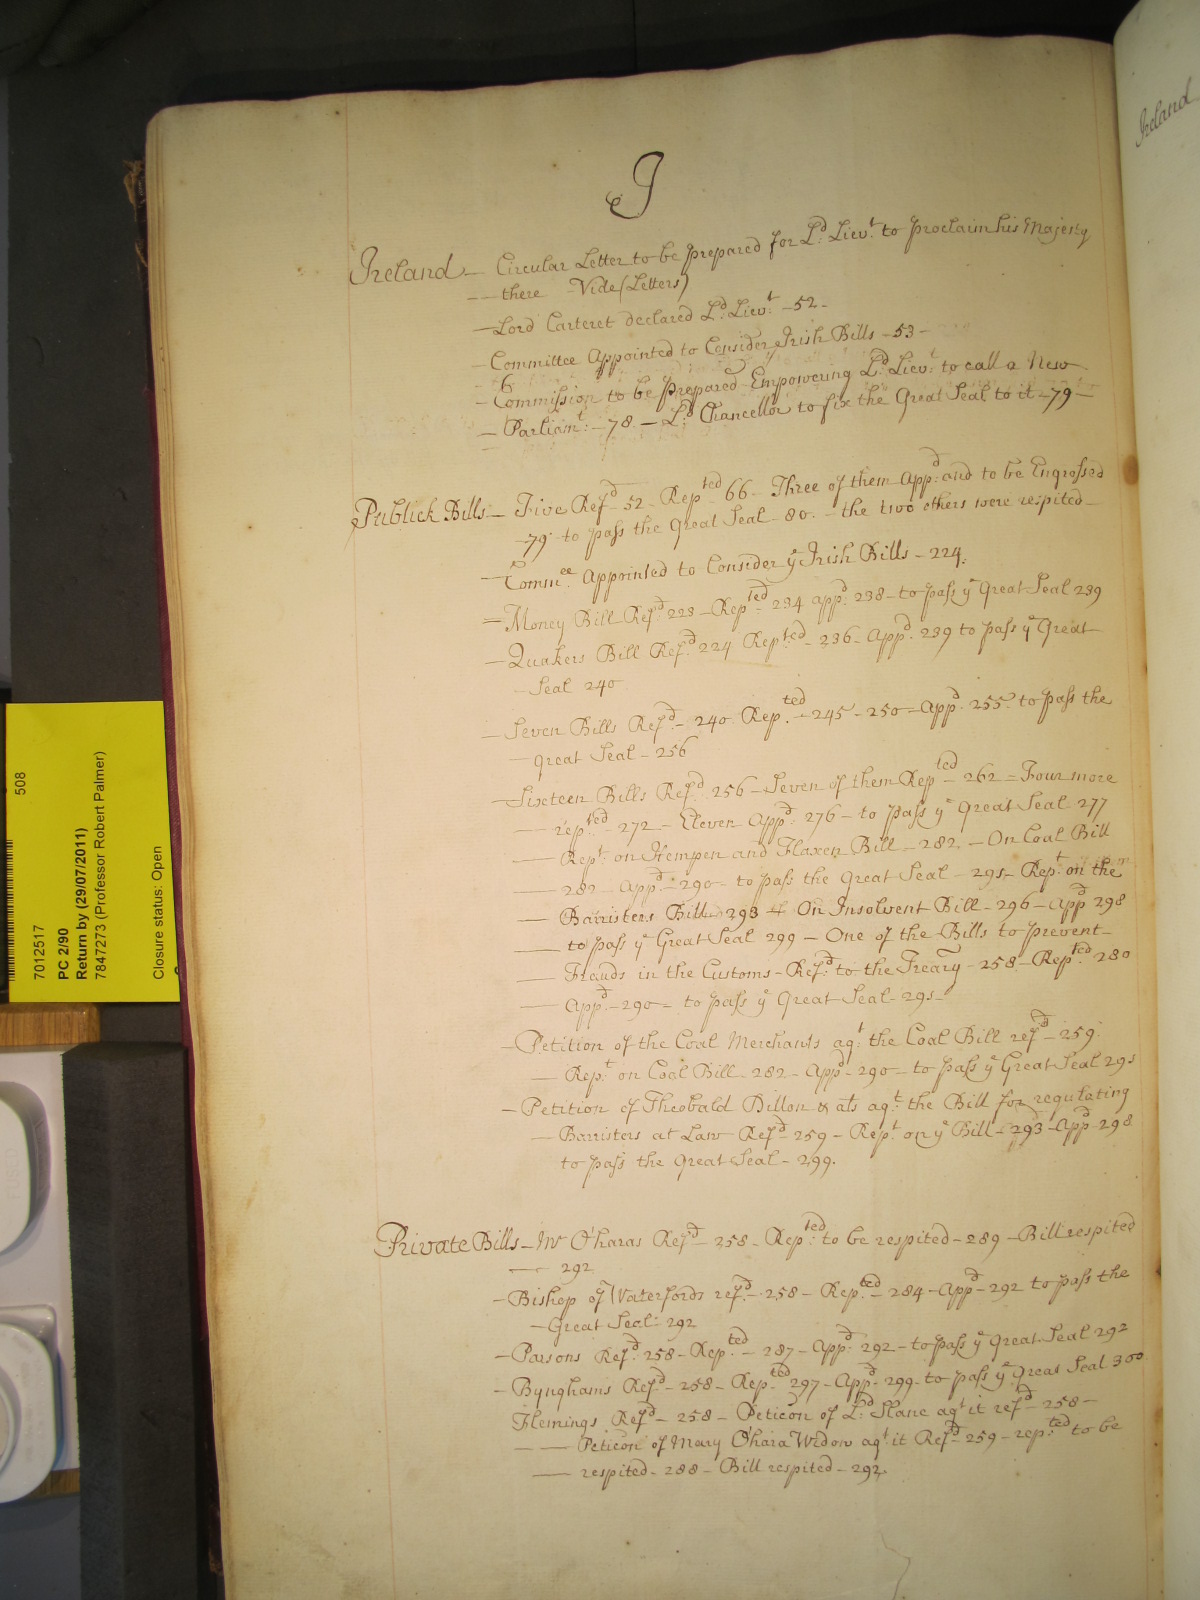 J
Ireland — Circular Letter to be prepared for Ld. Lievt. to proclaim his Majesty
— there Vide (Letters)
— Lord Carteret declared Ld. Lievt. — 52 —
— Committee Appointed to Consider Irish Bills — 53 —
— Commission to be prepared Empowering Ld. Lievt. to call a New
— Parliamt. — 78 — Ld. Chancellor to fix the Great Seal to it — 79 —
Publick Bills — Five Refd. — 52 — Repted. 66 — Three of them Appd. and to be Engrossed
— 79 — to pass the Great Seal — 80. — the two others were respited —
— Commee. Appointed to Consider ye Irish Bills — 224.
— Money Bill Refd. 223 — Repted. 234 appd. 238 — to pass ye Great Seal 239
— Quakers Bill Refd. 224 Repted. — 236 — Appd. 239 to pass ye Great
— Seal 240
— Seven Bills Refd. — 240. Repted. — 245 — 250 — Appd. 255. to pass the
— Great Seal — 256
— Sixteen Bills Refd. 256 — Seven of them Repted. 262 — Four more
— repted. — 272 — Eleven Appd. 276 — to pass ye Great Seal 277
— Rept. on Hempen and Flaxen Bill — 282. — On Coal Bill
— 282 — Appd. — 290 — to pass the Great Seal — 295 — Rept. on the
— Barristers Bill — 293 — On Insolvent Bill — 296 — Appd. 298
— to pass ye Great Seal 299 — One of the Bills to prevent —
— Frauds in the Customs — Refd. to the Treary — 258 — Repted. 280
— Appd. — 290 — to pass ye Great Seal — 295 —
— Petition of the Coal Merchants agt. the Coal Bill refd. — 259.
— Rept. on Coal Bill — 282 — Appd. — 290 — to pass ye Great Seal 295
— Petition of Theobald Dillon & als agt. the Bill for regulating
— Barristers at Law Refd. — 259 — Rept. on ye Bill — 293 — Appd. 298
to pass the Great Seal — 299.
Private Bills — Mr O'haras Refd. — 258 — Repted. to be respited — 289 — Bill respited
— 292
— Bishop of Waterfords refd. — 258 — Repted. — 284 — Appd. — 292 to pass the
— Great Seal — 292
— Parsons Refd. 258 — Repted. — 287 — Appd. 292 — to pass ye Great Seal 292
— Bynghams Refd. — 258 — Repted. 297 — Appd. 299 — to pass ye Great Seal 300
Flemings Refd. — 258 — Peticon of Ld. Slane agt. it refd. — 258 —
— — Peticon of Mary O'hara Widow agt. it Refd. — 259 — repted. to be
— respited — 288 — Bill respited — 292.
Ireland
508
7012517
PC 2/90
Return by (29/07/2011)
7847273 (Professor Robert Palmer)
Closure status: Open